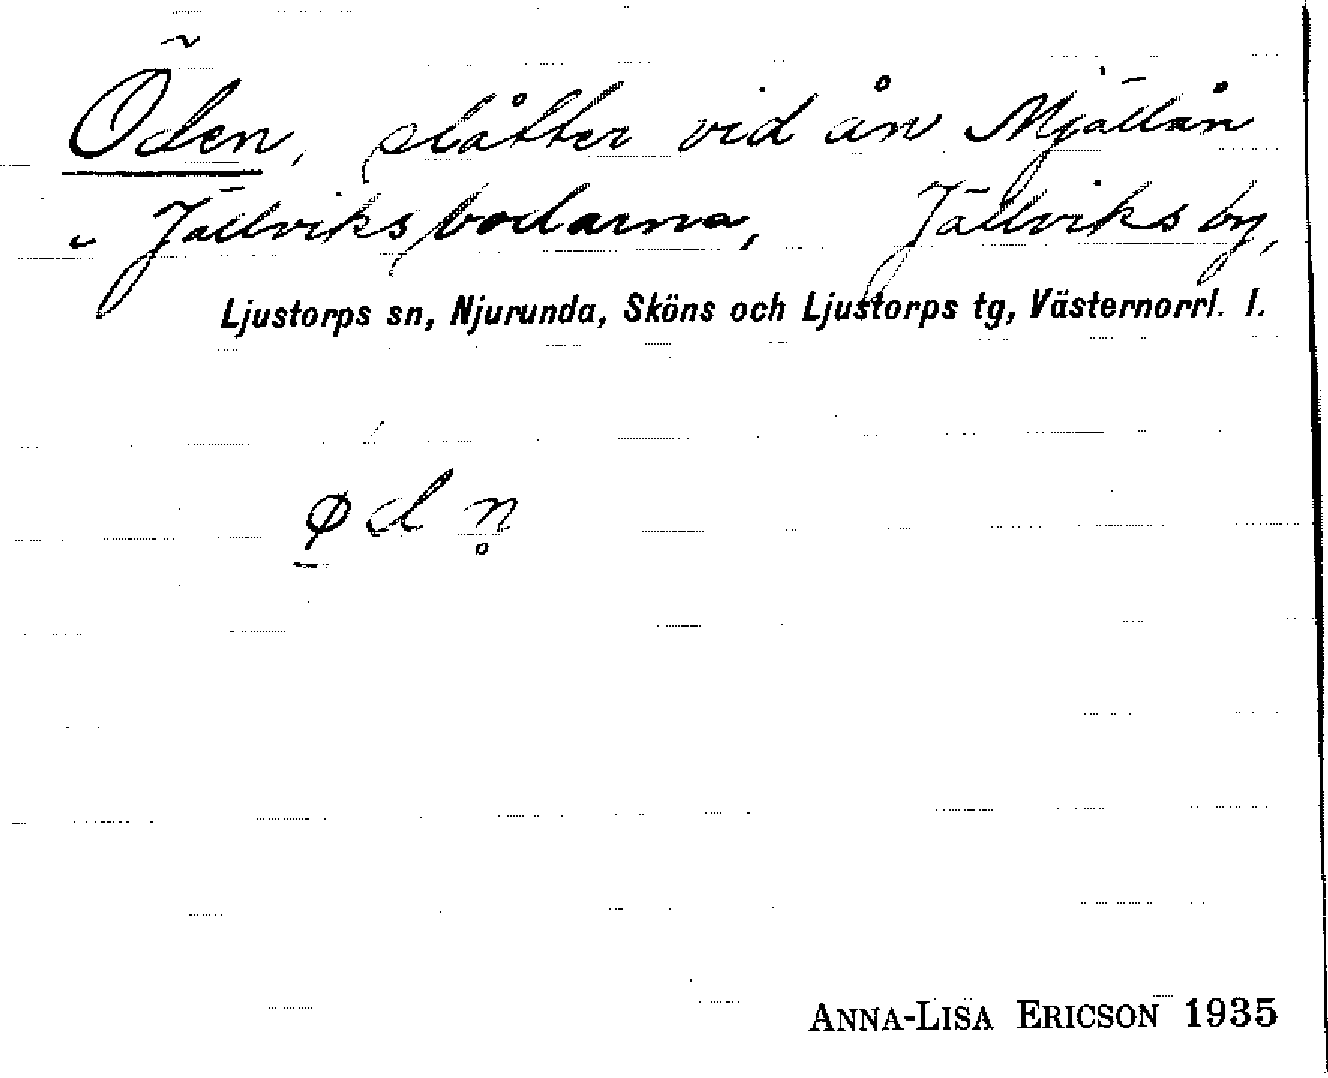 Öden, slåtter vid ån Mjällån
v Jällviksbodarna, Jällviks by,
Ljustorps sn, Njurunda, Sköns och Ljustorps tg, Västernorrl. l.
ø d n̥
ANNA-LISA ERICSON 1935